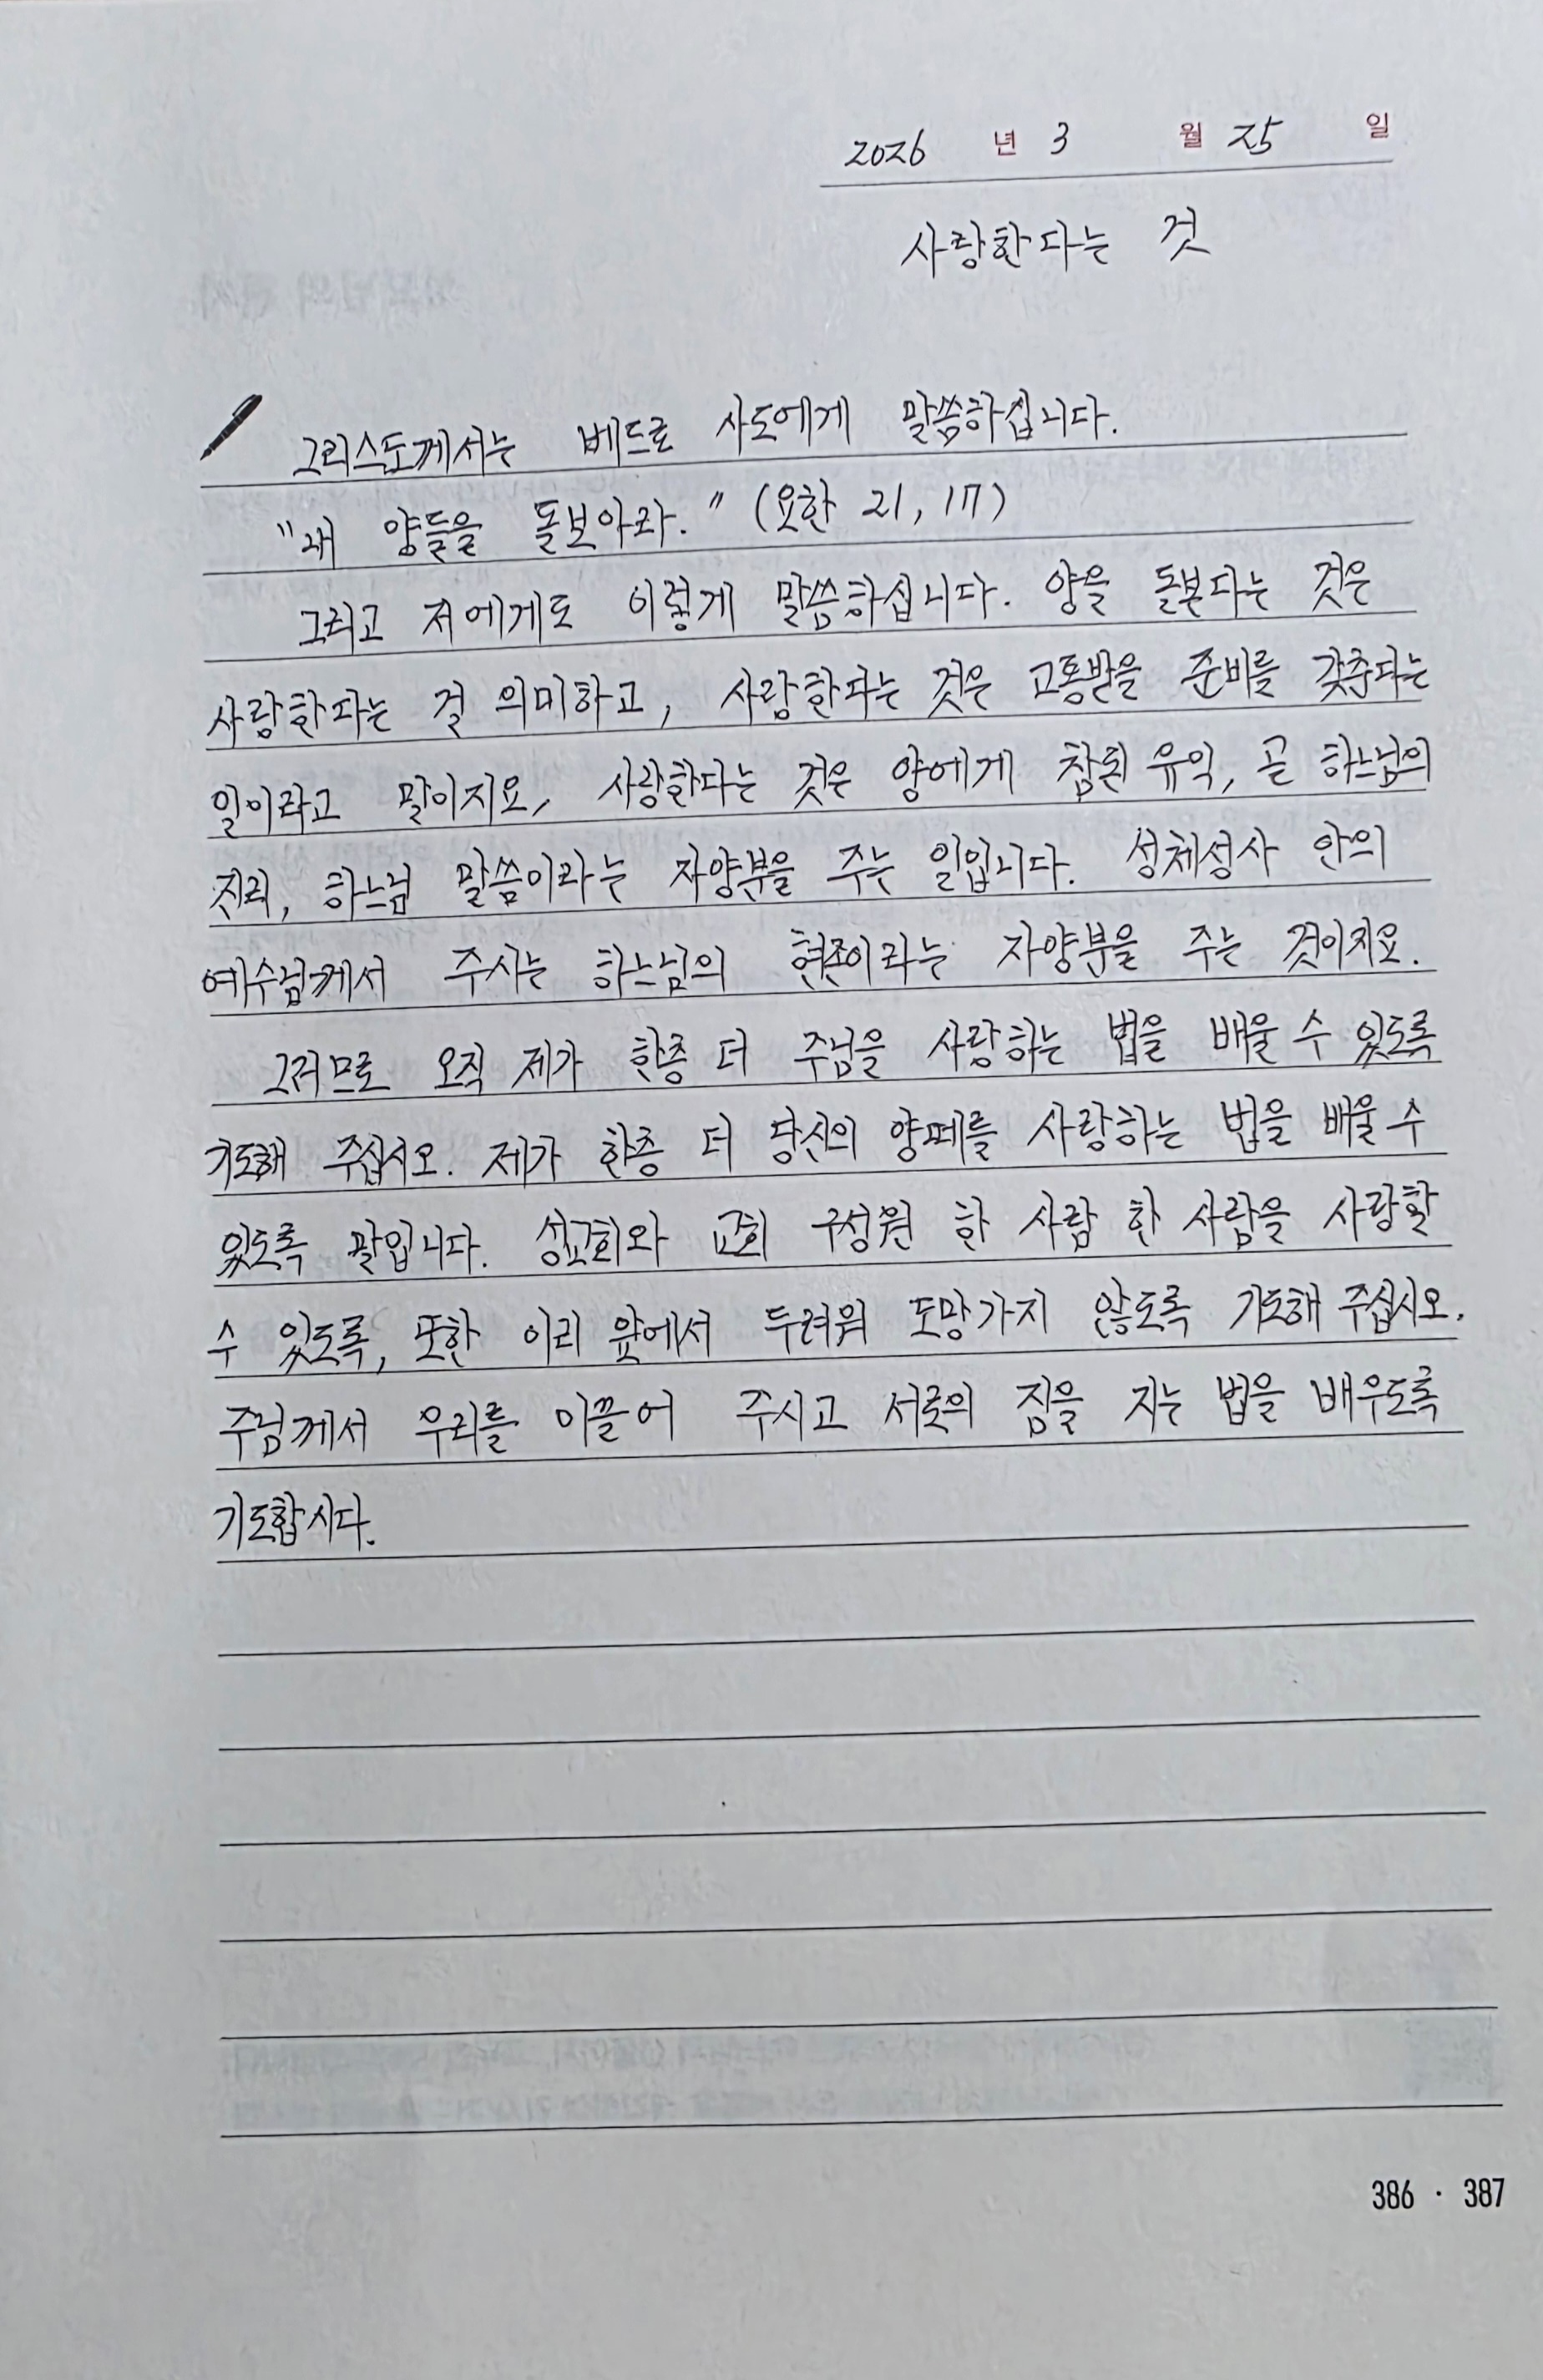 2026 년 3 월 25 일
사랑한다는 것
그리스도께서는 베드로 사도에게 말씀하십니다.
"내 양들을 돌보아라." (요한 21, 17)
그리고 저에게도 이렇게 말씀하십니다. 양을 돌본다는 것은
사랑한다는 걸 의미하고, 사랑한다는 것은 고통받을 준비를 갖춘다는
일이라고 말이지요, 사랑한다는 것은 양에게 참된 유익, 곧 하느님의
진리, 하느님 말씀이라는 자양분을 주는 일입니다. 성체성사 안의
예수님께서 주시는 하느님의 현존이라는 자양분을 주는 것이지요.
그러므로 오직 제가 한층 더 주님을 사랑하는 법을 배울 수 있도록
기도해 주십시오. 제가 한층 더 당신의 양떼를 사랑하는 법을 배울 수
있도록 말입니다. 성교회와 교회 구성원 한 사람 한 사람을 사랑할
수 있도록, 또한 이리 앞에서 두려워 도망가지 않도록 기도해 주십시오.
주님께서 우리를 이끌어 주시고 서로의 짐을 지는 법을 배우도록
기도합시다.
386 · 387